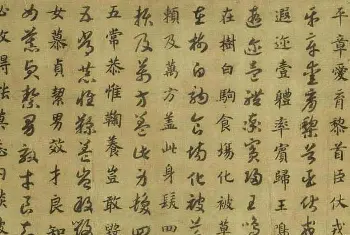 平章愛育黎首臣伏戎
平章愛育黎首臣伏戎
遐邇壹體率賓歸王鳴
遐邇壹體率賓歸王鳴
在樹白駒食場化被草
在樹白駒食場化被草
賴及萬方蓋此身髮四
賴及萬方蓋此身髮四
五常恭惟鞠養豈敢毀
五常恭惟鞠養豈敢毀
女慕貞絜男效才良知
女慕貞絜男效才良知
必改得能莫忘罔談彼